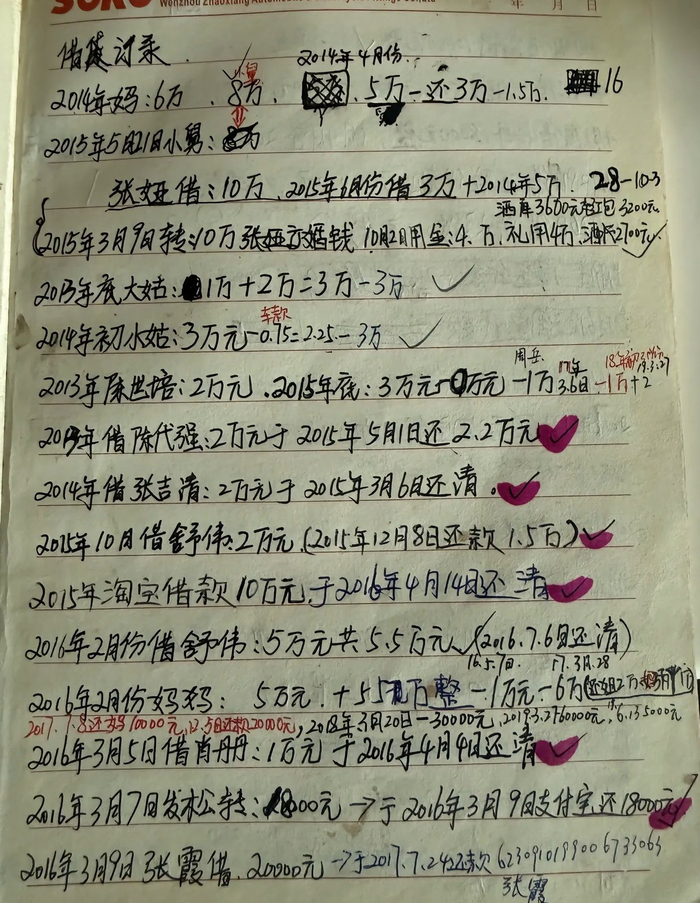 SORO Wenzhou Zhaoxiang Automobile
年 月 日
借贷记录
2014年4月份
小舅
2014年妈:6万、8万、5万-还3万-1.5万. 16
2015年5月21日小舅:
张娅借:10万、2015年6月份借3万+2014年5万. 28-10.3
酒席3600元红包3200元
2015年3月9日转:10万张娅 婚钱 10月2日用金:4.万、礼用4万、酒席2100元✓
2013年底大姑:1万+2万=3万-3万 ✓
车款
2014年初小姑:3万元-0.75=2.25-3万 ✓
周岳 17年 18年初
2013年陈世培:2万元.2015年底:3万元-0万元-1万3.6日.-1万+2
19.3.27
2013年借陈代强:2万元于2015年5月1日还2.2万元✓
2014年借张吉清:2万元于2015年3月6日还清.✓
2015年10月借舒伟:2万元.(2015年12月8日还款1.5万)✓
2015年淘宝借款10万元,于2016年4月14日还清✓
2016年2月份借舒伟:5万元共5.5万元✓(2016.7.6日还清)
16.5.7日. 17.3月.28
2016年2月份妈妈: 5万元 + 万整-1万元-6万(还姐2万
2017.1.8还妈10000元,12.5日还款20000元,2018年3月20日-30000元,2019.3.27 60000元, 6.13 5000元
2016年3月5日借肖丹丹:1万元 于2016年4月4日还清✓
2016年3月7日发松公转:18000元→于2016年3月9日支付宝还18000元✓
2016年3月9日张霞借.20000元→于2017.7.24还款 6230910199006733063
张霞